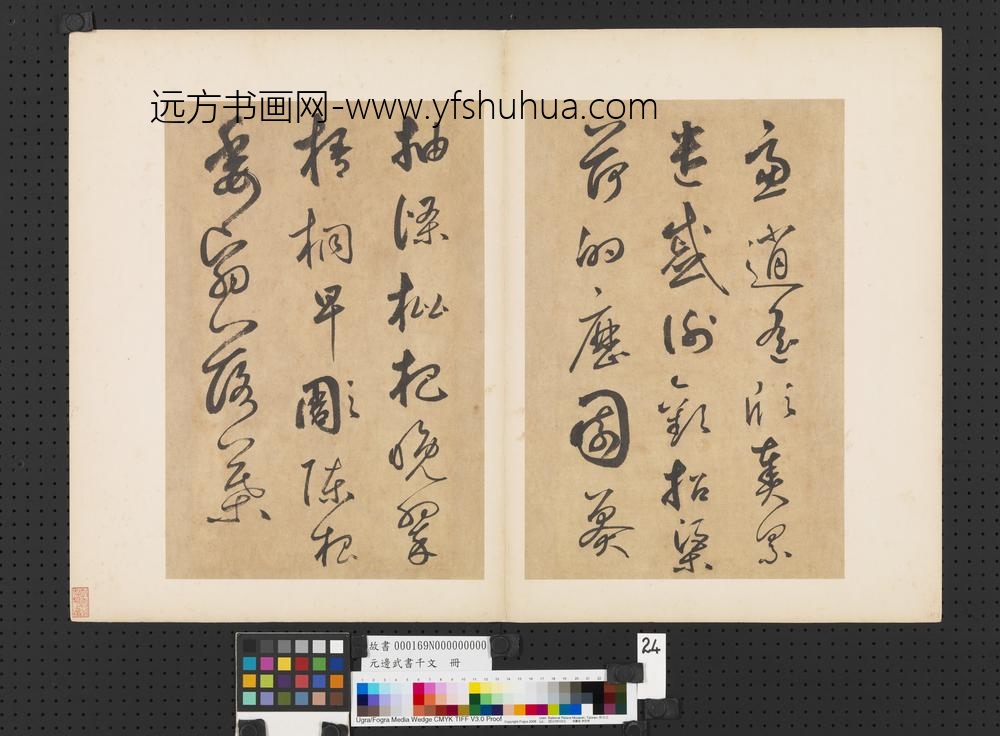 远方书画网-www.yfshuhua.com
慮逍遙欣奏累
遣慼謝歡招渠
荷的歷園莽
抽條枇杷晚翠
梧桐早彫陳根
委翳落葉
故書 000169N000000000
元邊武書千文 冊
24
Ugra/Fogra Media Wedge CMYK TIFF V3.0 Proof